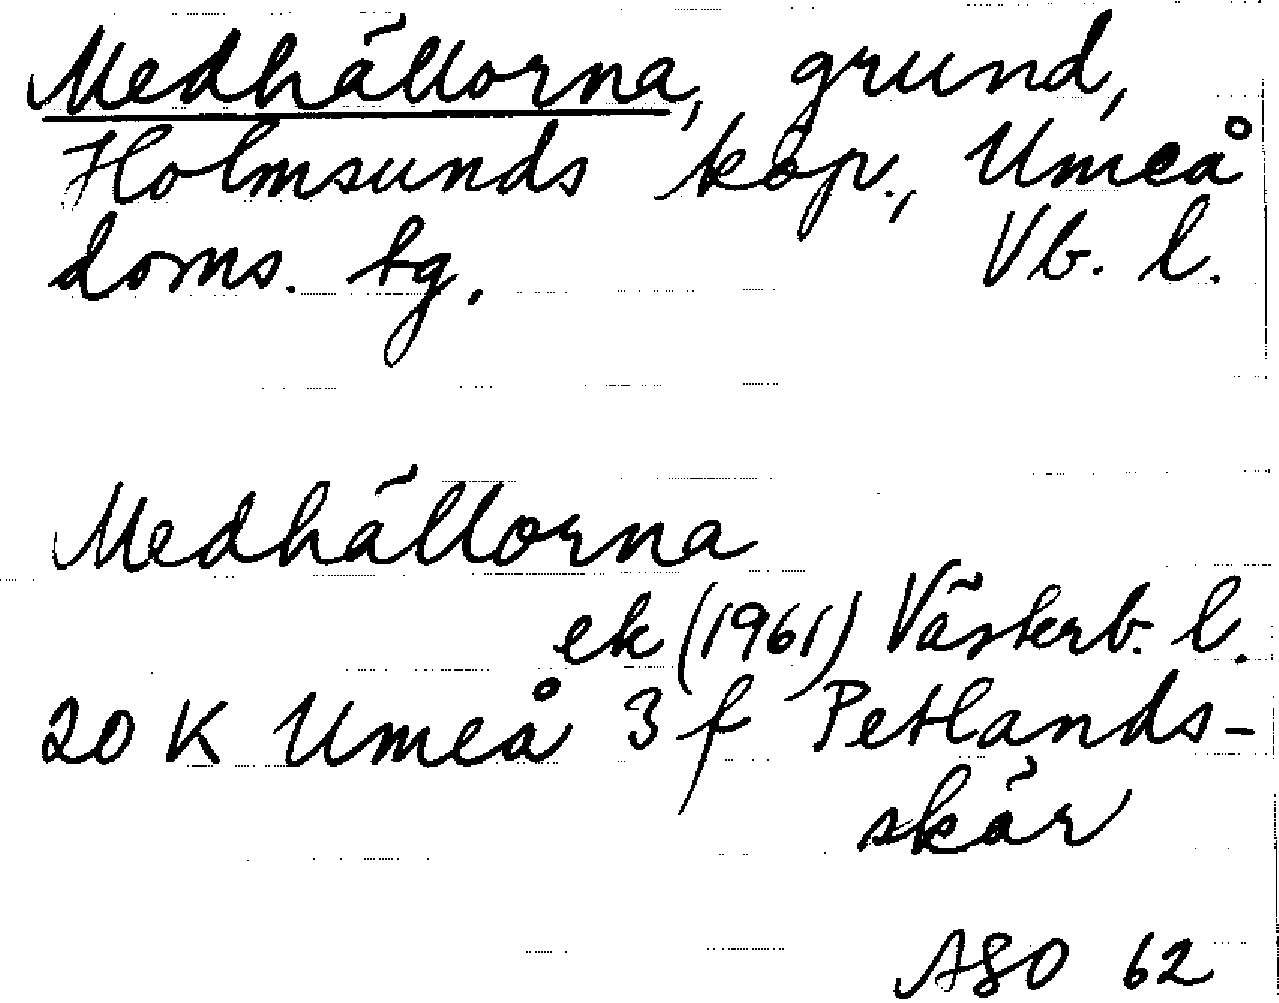 Medhällorna, grund,
Holmsunds köp., Umeå
doms. tg. Vb. l.
Medhällorna
ek (1961) Västerb. l.
20 K Umeå 3 f Petlands-
skär
ASO 62